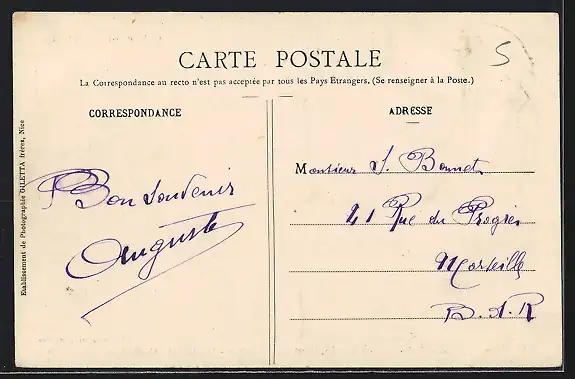 CARTE POSTALE
La Correspondance au recto n'est pas acceptée par tous les Pays Etrangers, (Se renseigner à la Poste.)
CORRESPONDANCE
Bon souvenir
Auguste
ADRESSE
Monsieur J. Bonnet
41 Rue du Progrès
Marseille
B.d.R
Etablissement de Photographie GILETTA frères, Nice
5